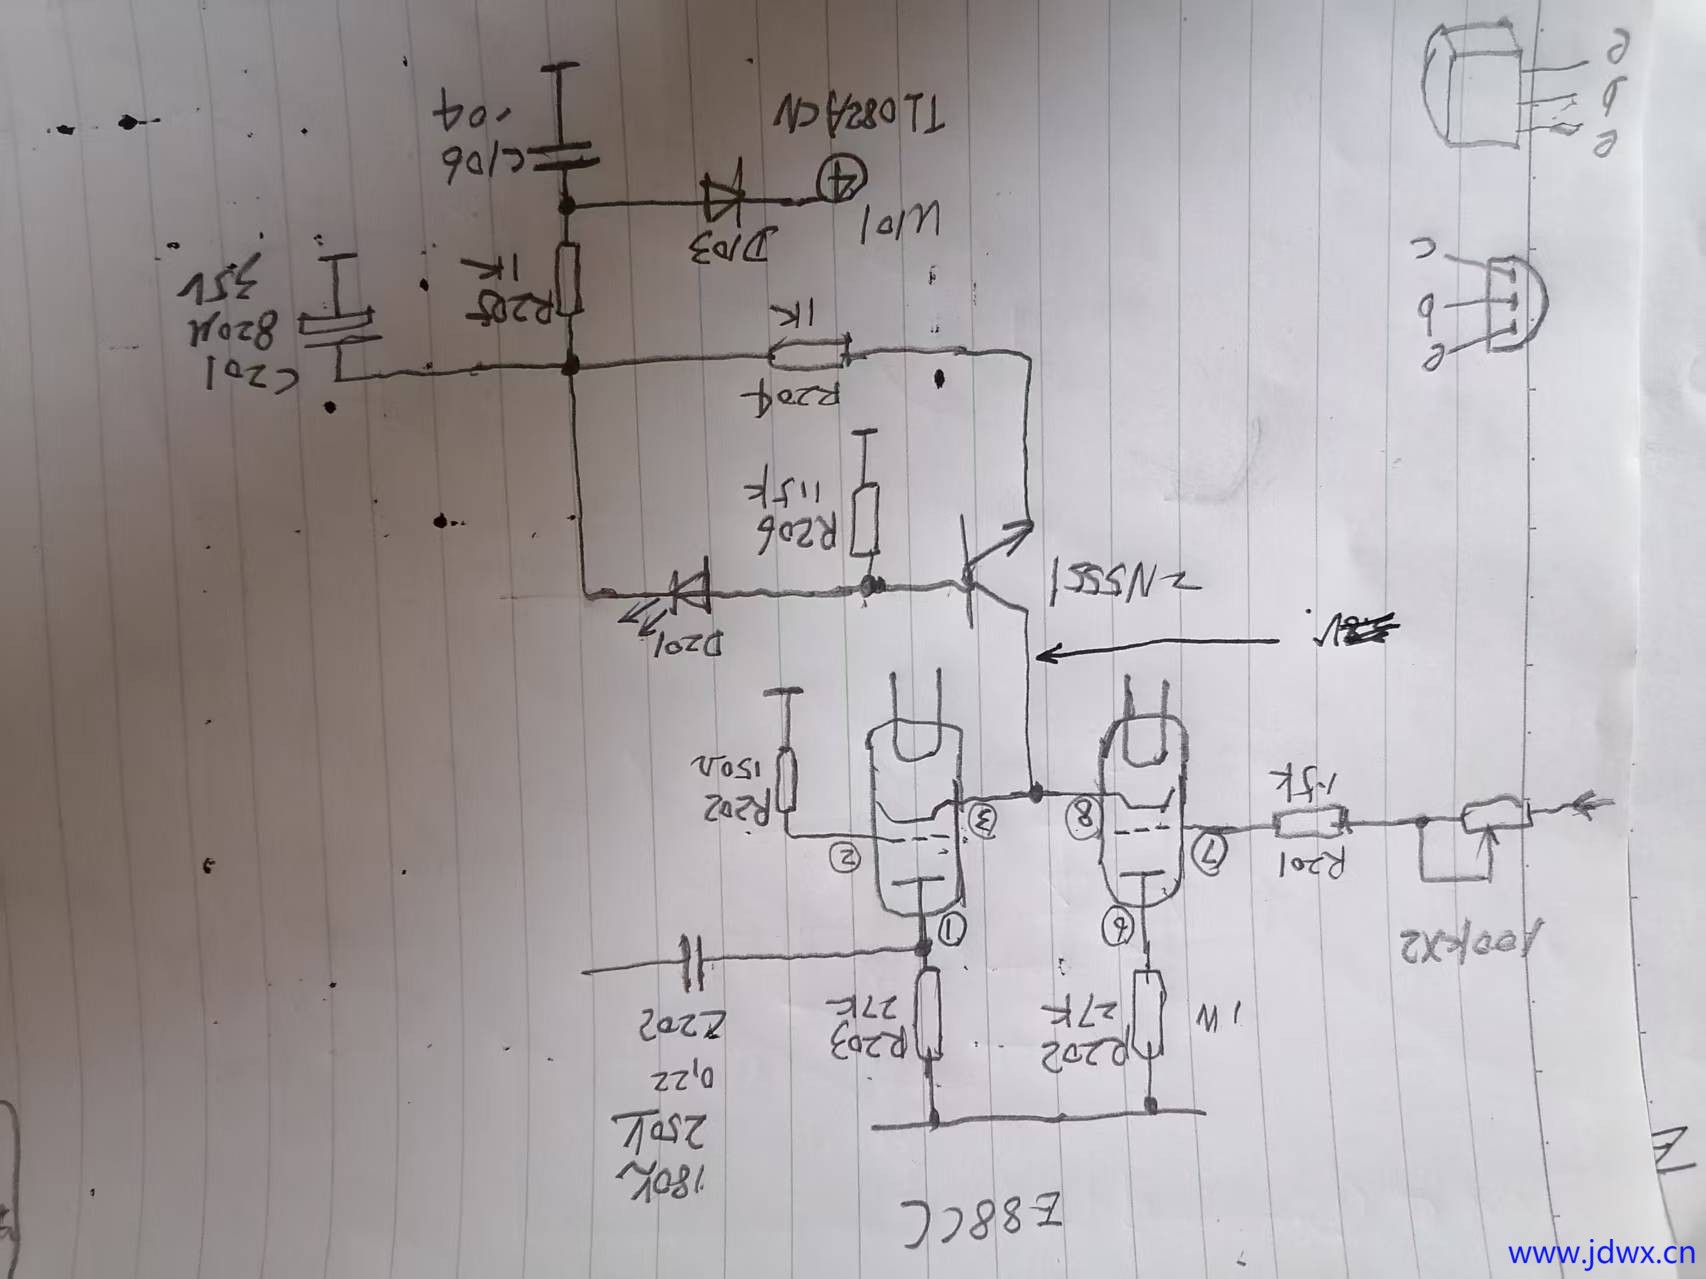 E88CC
1W
R202
27K
R203
27K
C202
0,22
250V
180V
100K×2
R201
1.5K
R202
150Ω
6
1
7
8
3
2
2N5551
D201
R206
11.5K
R204
1K
C201
820μ
35V
R205
1K
D103
U101
4
TL082ACN
C106
.04
e
b
c
e
b
www.jdwx.cn